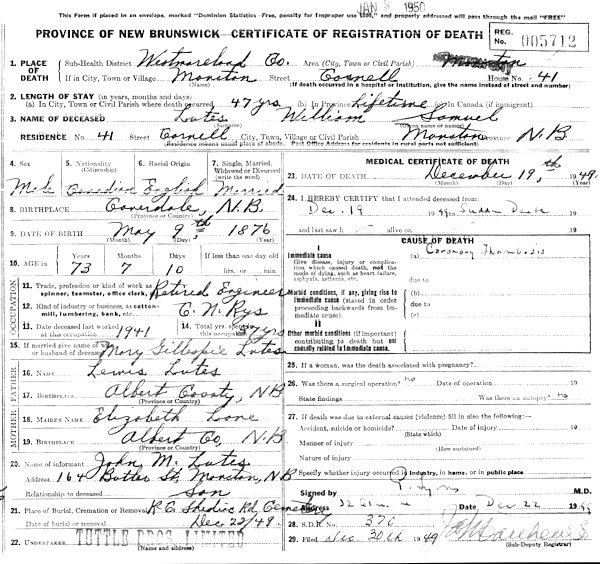 JAN 1950
This Form if placed in an envelope, marked "Dominion Statistics - Free, penalty for improper use $300," and properly addressed will pass through the mail "FREE"
PROVINCE OF NEW BRUNSWICK—CERTIFICATE OF REGISTRATION OF DEATH
REG. No. 005712
1. PLACE OF DEATH Sub-Health District Westmoreland Co. Area (City, Town or Civil Parish) Moncton
If in City, Town or Village Moncton Street Cornell House No. 41
(If death occurred in a hospital or institution, give the name instead of street and number)
2. LENGTH OF STAY (in years, months and days)
(a) In City, Town or Civil Parish where death occurred 47 yrs (b) In Province Lifetime In Canada (if immigrant)
3. NAME OF DECEASED Lutes William Samuel
(Surname) (Given name or names)
RESIDENCE No. 41 Street Cornell City, Town, Village or Civil Parish Moncton Province N.B
(Residence means usual place of abode. Post Office Address for residents in rural parts not sufficient)
4. Sex 5. Nationality (Citizenship) 6. Racial Origin 7. Single, Married, Widowed or Divorced (write the word)
Male Canadian English Married
8. BIRTHPLACE Coverdale, N.B.
(Province or Country)
9. DATE OF BIRTH May 9th 1876
(Month) (Day) (Year)
10. AGE in Years Months Days If less than one day old
73 7 10 hrs. or min.
OCCUPATION
11. Trade, profession or kind of work as spinner, teamster, office clerk, Retired Engineer
12. Kind of industry or business, as cotton-mill, lumbering, bank, etc. C. N. Rys
13. Date deceased last worked at this occupation 1941 14. Total yrs. spent in this occupation yrs
15. If married give name of wife or husband of deceased Mary Gillespie Lutes
FATHER
16. NAME Lewis Lutes
17. BIRTHPLACE Albert County, N.B
(Province or Country)
MOTHER
18. MAIDEN NAME Elizabeth Lone
19. BIRTHPLACE Albert Co, N.B.
(Province or Country)
20. Name of informant John M. Lutes
Address 164 Butler St, Moncton, NB
Relationship to deceased son
21. Place of Burial, Cremation or Removal R.C. Shediac Rd, Cemetery
Date of burial or removal Dec 22/49
22. UNDERTAKER TUTTLE BROS. LIMITED
(Name and address)
MEDICAL CERTIFICATE OF DEATH
23. DATE OF DEATH December 19,th 1949.
(Month) (Day) (Year)
24. I HEREBY CERTIFY that I attended deceased from:
Dec. 19 1949 to Sudden Death 19
and last saw h alive on 19
CAUSE OF DEATH
I
Immediate cause
Give disease, injury or complication which caused death, not the mode of dying, such as heart failure, asphyxia, asthenia, etc.
(a) Coronary Thrombosis
due to
Morbid conditions, if any, giving rise to immediate cause (stated in order proceeding backwards from immediate cause).
(b)
due to
(c)
II
Other morbid conditions (if important) contributing to death but not causally related to immediate cause.
25. If a woman, was the death associated with pregnancy?
26. Was there a surgical operation? no Date of operation 19
State findings Was there an autopsy? no
27. If death was due to external causes (violence) fill in also the following:—
Accident, suicide or homicide? Date of injury 19
(State which)
Manner of injury
(How sustained)
Nature of injury
Specify whether injury occurred in industry, in home, or in public place
Signed by M.D.
Address Date Dec. 22 1949
28. S.D.R. No. 370
29. Filed Dec. 30th 1949
(Sub-Deputy Registrar)